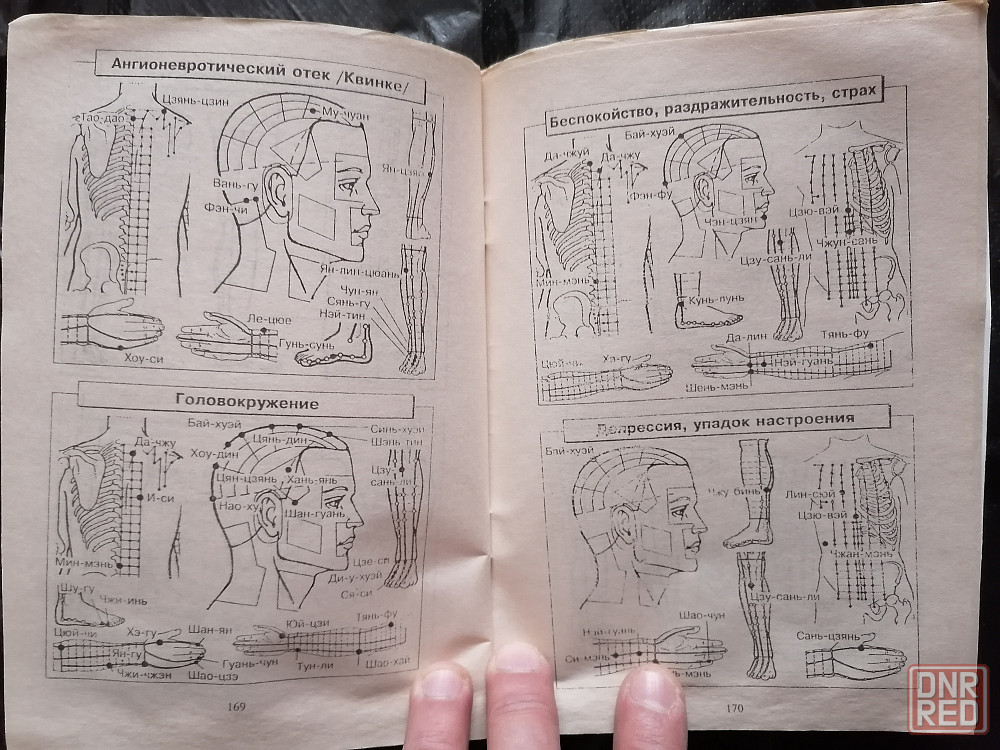 Ангионевротический отек /Квинке/
Цзянь-цзин
Тао-дао
Му-чуан
Ян-цзяо
Вань-гу
Фэн-чи
Ян-лин-цюань
Чун-ян
Сянь-гу
Нэй-тин
Ле-цюе
Гунь-сунь
Хоу-си
Головокружение
Бай-хуэй
Синь-хуэй
Да-чжу
Цянь-дин
Шэнь-тин
Хоу-дин
Цзу-
сань-ли
Цян-цзянь
Хань-янь
И-си
Нао-ху
Шан-гуань
Мин-мэнь
Цзе-си
Ди-у-хуэй
Ся-си
Шу-гу
Чжи-инь
Тянь-фу
Цюй-чи
Хэ-гу
Шан-ян
Юй-цзи
Ян-гу
Гуань-чун
Тун-ли
Шао-хай
Чжи-чжэн
Шао-цзэ
169
Беспокойство, раздражительность, страх
Бай-хуэй
Да-чжуй
Да-чжу
Фэн-фу
Чэн-цзян
Цзю-вэй
Чжун-сань
Цзу-сань-ли
Мин-мэнь
Кунь-лунь
Да-лин
Тянь-фу
Цюй-чи
Хэ-гу
Нэй-гуань
Шень-мэнь
Депрессия, упадок настроения
Бай-хуэй
Чжу-бинь
Лин-сюй
Цзю-вэй
Чжан-мэнь
Цзу-сань-ли
Шао-чун
Нэй-гуань
Сань-цзянь
Си-мэнь
нь-мэнь
170
DNR
RED